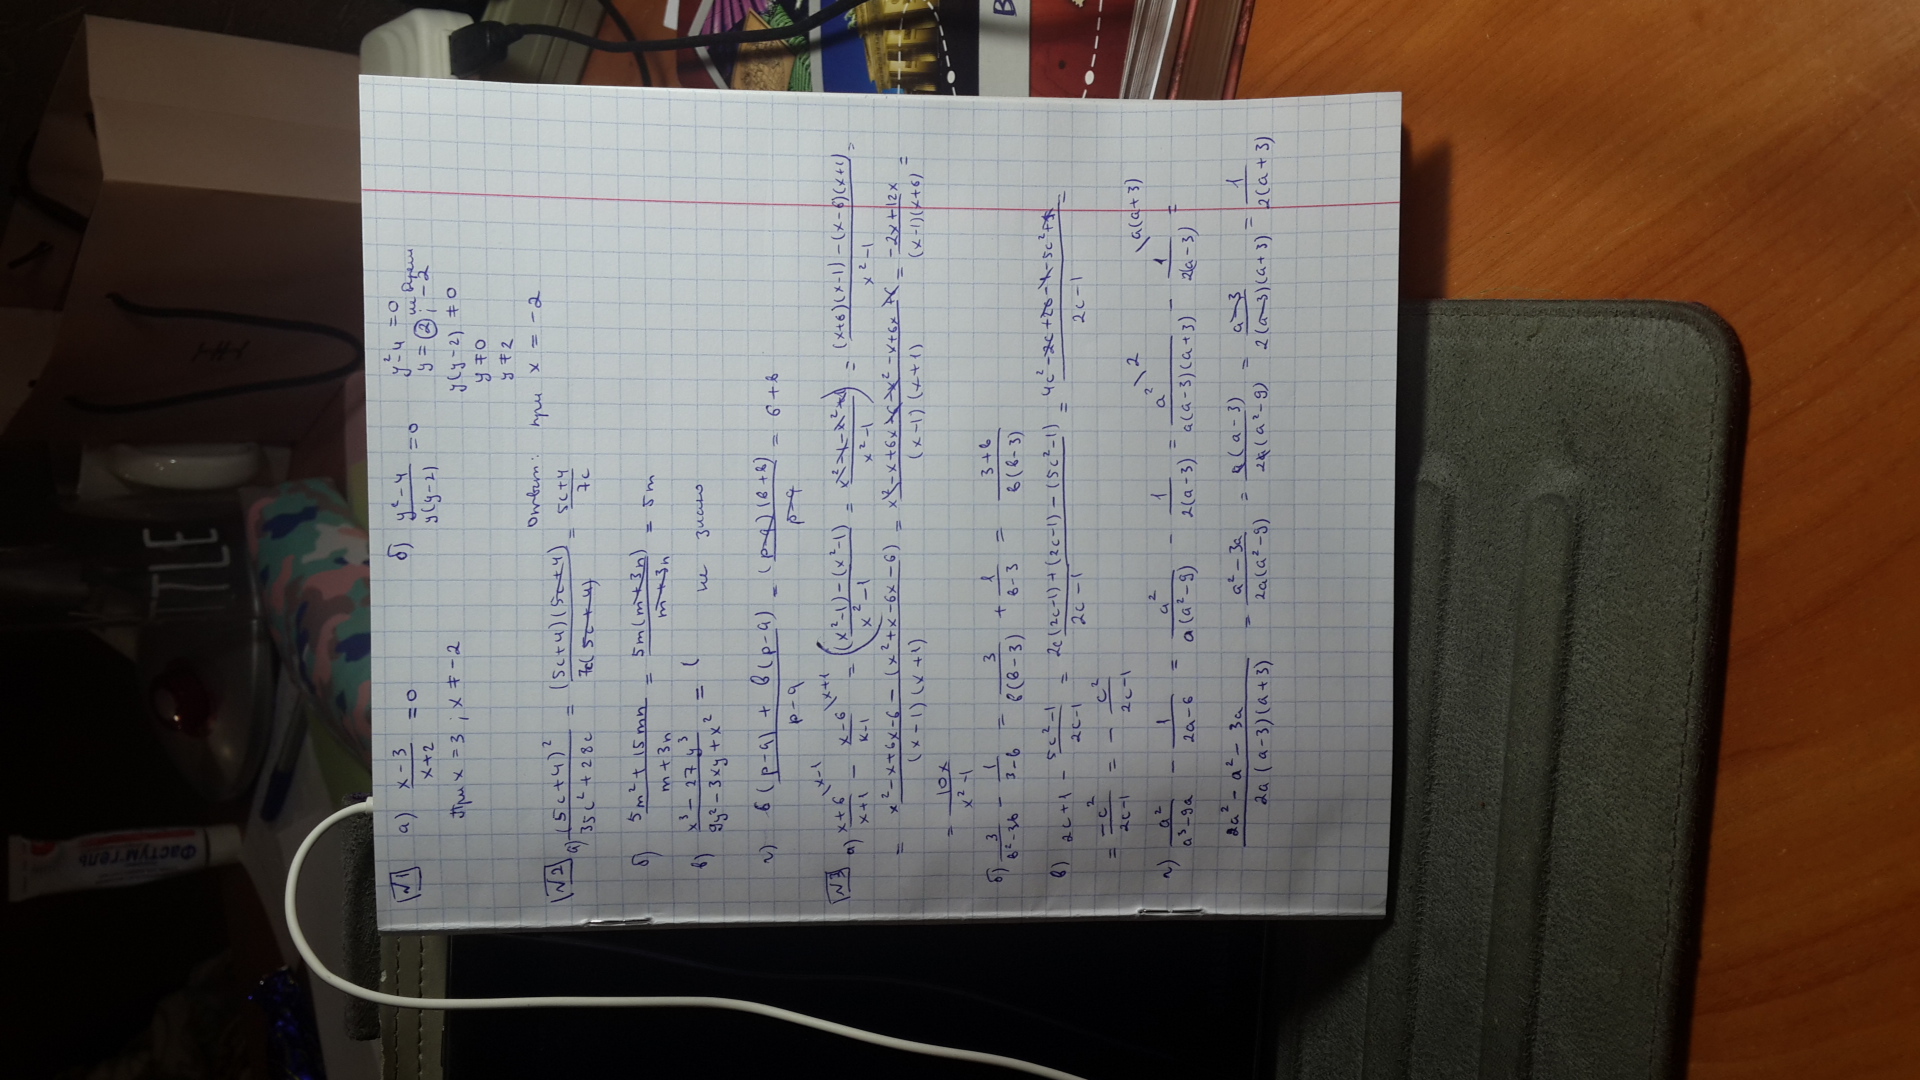 √1 а) x-3/x+2 =0 б) y²-4/y(y-2) =0 y²-4=0
y=2; -2
При x=3; x≠-2 y(y-2)≠0
y≠0
y≠2
Ответ: при x=-2
√2 а) (5c+4)²/35c²+28c = (5c+4)(5c+4)/7c(5c+4) = 5c+4/7c
б) 5m²+15mn/m+3n = 5m(m+3n)/m+3n = 5m
в) x³-27y³/9y²-3xy+x² = ( не знаю
г) 6(p-q)+8(p-q)/p-q = (p-q)(6+8)/p-q = 6+8
√3 а) x+6/x+1 \x-1 - x-6/x-1 \x+1 = (x²-1)-(x²-1)/x²-1 = x²-1-x²+1/x²-1 = (x+6)(x-1)-(x-6)(x+1)/x²-1 =
= x²-x+6x-6-(x²+x-6x-6)/(x-1)(x+1) = x²-x+6x-6-x²-x+6x+6/(x-1)(x+1) = -2x+12x/(x-1)(x+6) =
= 10x/x²-1
б) 3/в²-3в - 1/3-в = 3/в(в-3) + 1/в-3 = 3+в/в(в-3)
в) 2c+1 - 5c²-1/2c-1 = 2c(2c-1)+(2c-1)-(5c²-1)/2c-1 = 4c²-2c+2c-1-5c²+1/2c-1 =
= -c²/2c-1 = - c²/2c-1
г) a²/a³-9a - 1/2a-6 = a²/a(a²-9) - 1/2(a-3) = a² \2/a(a-3)(a+3) - 1 \a(a+3)/2(a-3) =
2a²-a²-3a/2a(a-3)(a+3) = a²-3a/2a(a²-9) = a(a-3)/2a(a²-9) = a-3/2(a-3)(a+3) = 1/2(a+3)
Фастум гель